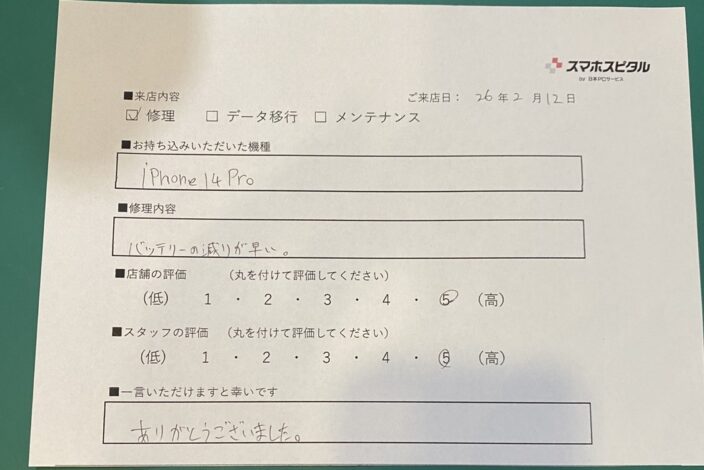 スマホスピタル
by 日本PCサービス
■来店内容
ご来店日： 26年2月12日
☑ 修理 □ データ移行 □ メンテナンス
■お持ち込みいただいた機種
iPhone 14 Pro
■修理内容
バッテリーの減りが早い。
■店舗の評価 （丸を付けて評価してください）
（低） 1 ・ 2 ・ 3 ・ 4 ・ 5 （高）
■スタッフの評価 （丸を付けて評価してください）
（低） 1 ・ 2 ・ 3 ・ 4 ・ 5 （高）
■一言いただけますと幸いです
ありがとうございました。